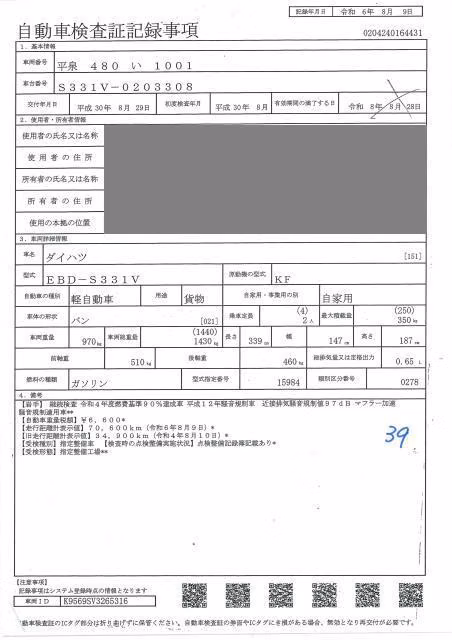 記録年月日 令和 6年 8月 9日
自動車検査証記録事項
0204240164431
1．基本情報
車両番号 平泉 480 い 1001
車台番号 S331V-0203308
交付年月日 平成 30年 8月 29日 初度検査年月 平成 30年 8月 有効期間の満了する日 令和 8年 8月 28日
2．使用者・所有者情報
使用者の氏名又は名称
使用者の住所
所有者の氏名又は名称
所有者の住所
使用の本拠の位置
3．車両詳細情報
車名 ダイハツ [151]
型式 EBD-S331V 原動機の型式 KF
自動車の種別 軽自動車 用途 貨物 自家用・事業用の別 自家用
車体の形状 バン [021] 乗車定員 (4) 2人 最大積載量 (250) 350kg
車両重量 970kg 車両総重量 (1440) 1430kg 長さ 339cm 幅 147cm 高さ 187cm
前軸重 510kg 後軸重 460kg 総排気量又は定格出力 0.65L
燃料の種類 ガソリン 型式指定番号 15984 類別区分番号 0278
4．備考
【岩手】 継続検査 令和4年度燃費基準90%達成車 平成12年騒音規制車 近接排気騒音規制値97dB マフラー加速
騒音規制適用車**
【自動車重量税額】￥6,600*
【走行距離計表示値】70,600km（令和6年8月9日）*
【旧走行距離計表示値】34,900km（令和4年8月10日）*
【受検種別】指定整備車 【検査時の点検整備実施状況】点検整備記録簿記載あり*
【受検形態】指定整備工場**
39
【注意事項】
記録事項はシステム登録時点の情報となります
車両ID K9569SV3265316
自動車検査証のICタグ部分は折り曲げずに保管ください。自動車検査証の券面やICタグにき損がある場合、無効となり再交付が必要です。